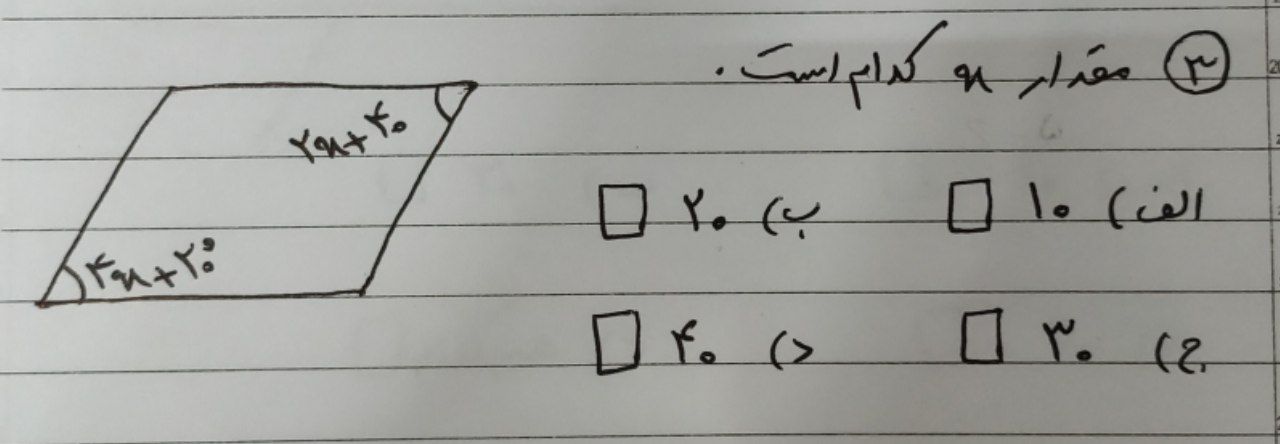 ۳ مقدار x کدام است.
۲x+۴۰
۴x+۲۰°
الف) ۱۰ ب) ۲۰
ج) ۳۰ د) ۴۰